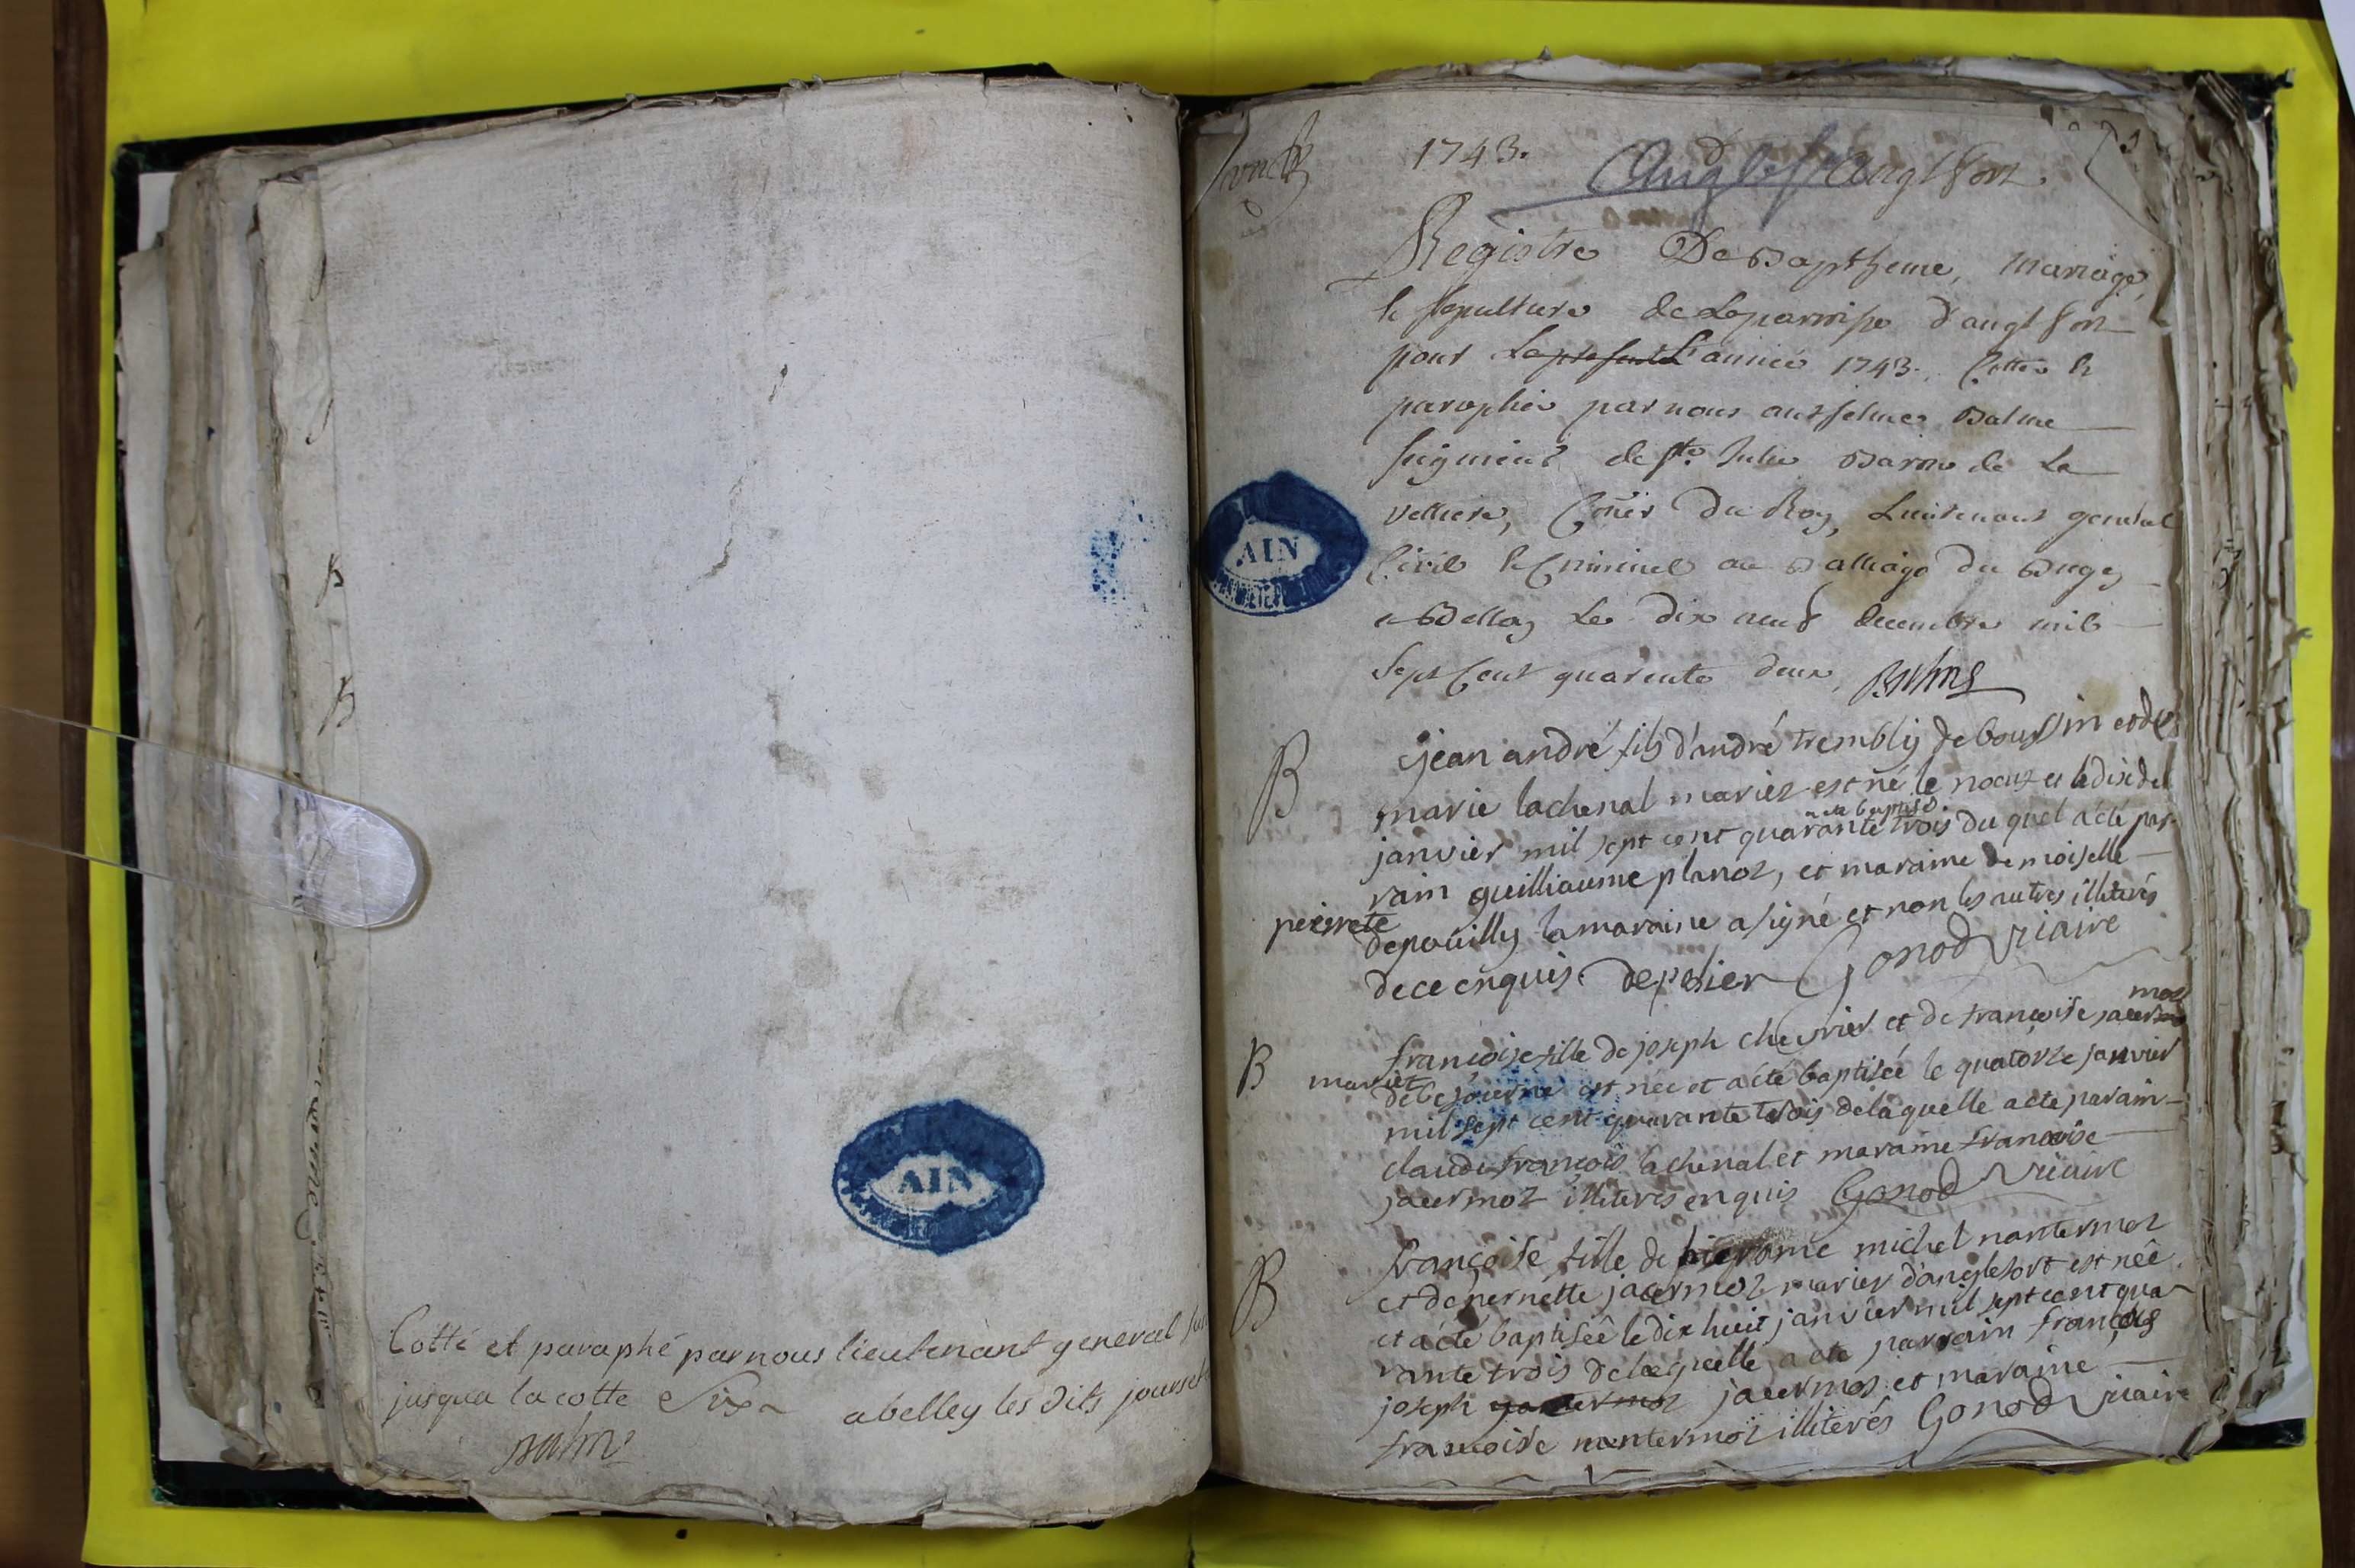 Cotté et paraphé par nous lieutenant general
jusqua la cotte Six abelley les dits jours et
Balme
1743.
Anglefort anglefort.
Registre De Baptheme, mariage,
& sepulture de La parroisse d'anglefort
pour La presente L'année 1743. Cotté &
paraphée par nous anthelme Balme
seigneur de Ste. Julie Baron de La
velliere, Coner Du Roy, Lieutenant general
Civil & Criminel au Balliage du Bugey
a Belley Le dix neuf decembre mil
sept Cent quarente deux, Balme
AIN
AIN
B
jean andré fils d'andré trembly de boursin et de
marie lachenal mariez est né le neuf et le dix de
a été baptisé
janvier mil sept cent quarante trois du quel a été par-
rain guilliaume planoz, et maraine demoiselle
peirrete depoüilly la maraine a signé et non les autres illiterés
de ce enquis. depolier Gonod viciaire
B
francoise fille de joseph chevrier et de francoise jacermoz
mariez de bezoierne est née et a été baptisée le quatorze janvier
mil sept cent quarante trois de laquelle a été parain
claude françois lachenal et maraine francoise
jacermoz illiterés enquis Gonod viciaire
B
françoise fille de hierome michel nantermoz
et de pernette jacermoz mariez d'anglefort est née
et a été baptisée le dix huit janvier mil sept cent qua-
rante trois de laquelle a été parrain françois
joseph jacermoz et maraine
francoise nantermoz illiterés Gonod viciaire